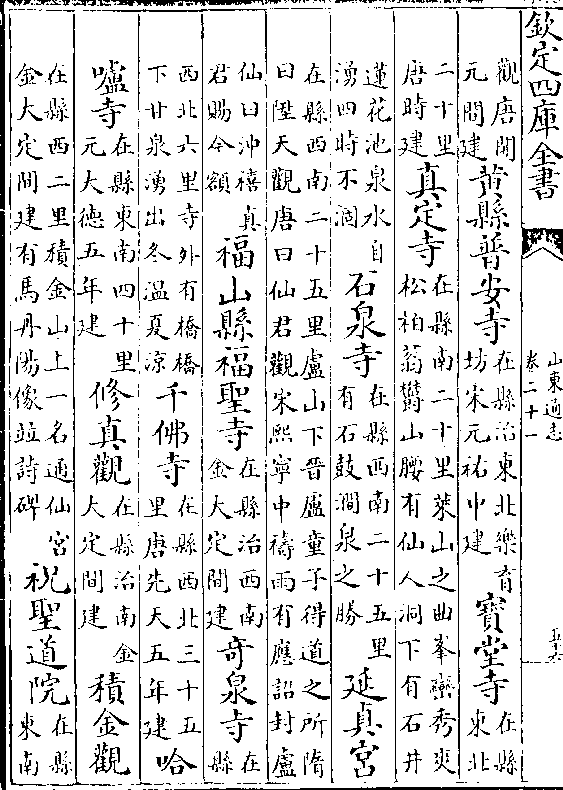 欽定四庫全書
山東通志
卷二十一
觀唐開
元間建
黄縣普安寺
在縣治東北樂育
坊宋元祐中建
寳堂寺
在縣
東北
二十里
唐時建
真定寺
在縣南二十里萊山之曲峯巒秀爽
松柏蓊欝山腰有仙人洞下有石井
蓮花池泉水自
湧四時不涸
石泉寺
在縣西南二十五里
有石鼓澗泉之勝
延真宮
在縣西南二十五里盧山下晉盧童子得道之所隋
曰陞天觀唐曰仙君觀宋熙寧中禱雨有應詔封盧
仙曰沖禧真
君賜今額
福山縣福聖寺
在縣治西南
金大定間建
奇泉寺
在
縣
西北六里寺外有橋橋
下甘泉湧出冬温夏涼
千佛寺
在縣西北三十五
里唐先天五年建
哈
嚧寺
在縣東南四十里
元大德五年建
修真觀
在縣治南金
大定間建
積金觀
在縣西二里積金山上一名通仙宮
金大定間建有馬丹陽像竝詩碑
祝聖道院
在縣
東南